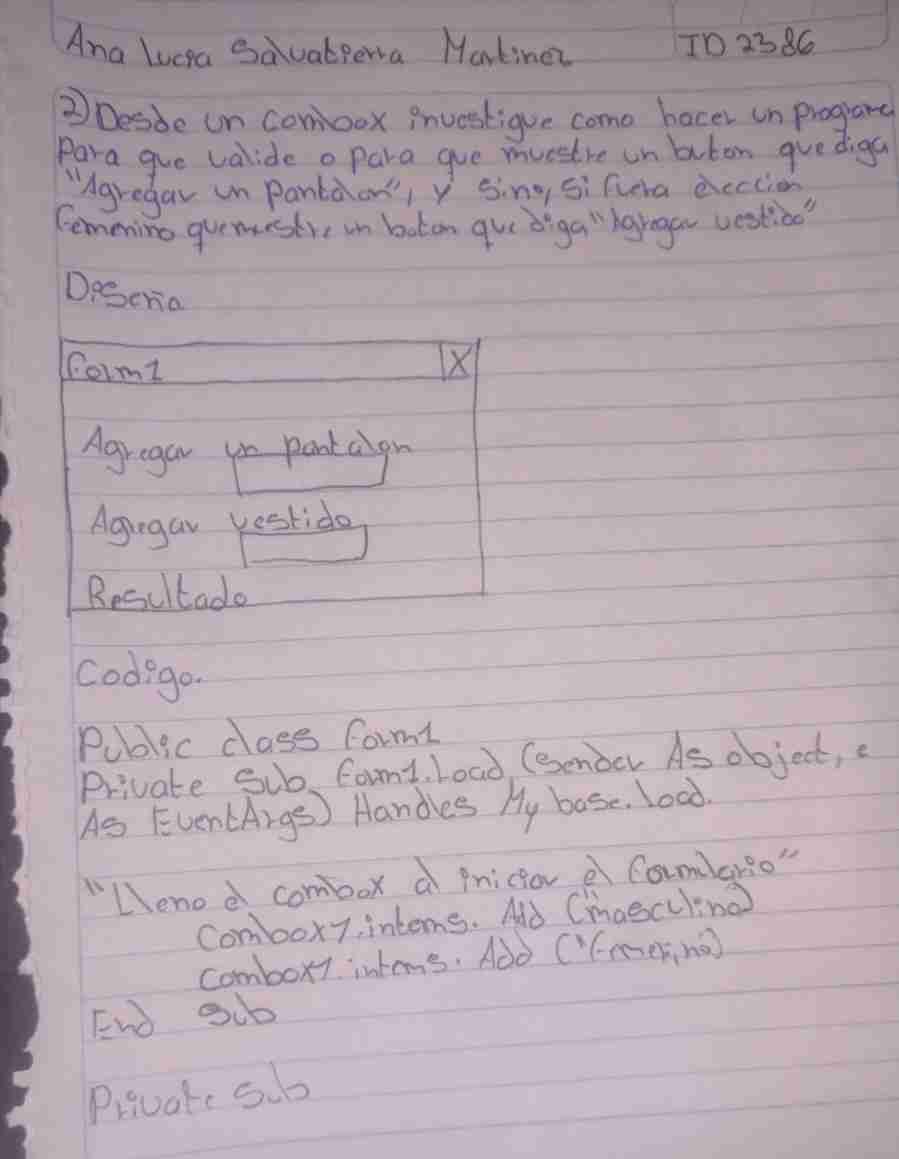 Ana Lucia Salvatierra Martinez ID 2386
2) Desde un combox investigue como hacer un programa
Para que valide o para que muestre un buton que diga
"Agregar un pantalon", y sino, si fuera eleccion
femenino que muestre un boton que diga "Agregar vestido"
Diseña
Form1 X
Agregar un pantalon
Agregar vestido
Resultado
Codigo.
Public class form1
Private Sub form1.Load (sender As object, e
As EventArgs) Handles My base.load.
"Lleno el combox al iniciar el formulario"
Combox1.intems. Add ("masculino)
combox1.intems. Add ("femenino)
End Sub
Private Sub